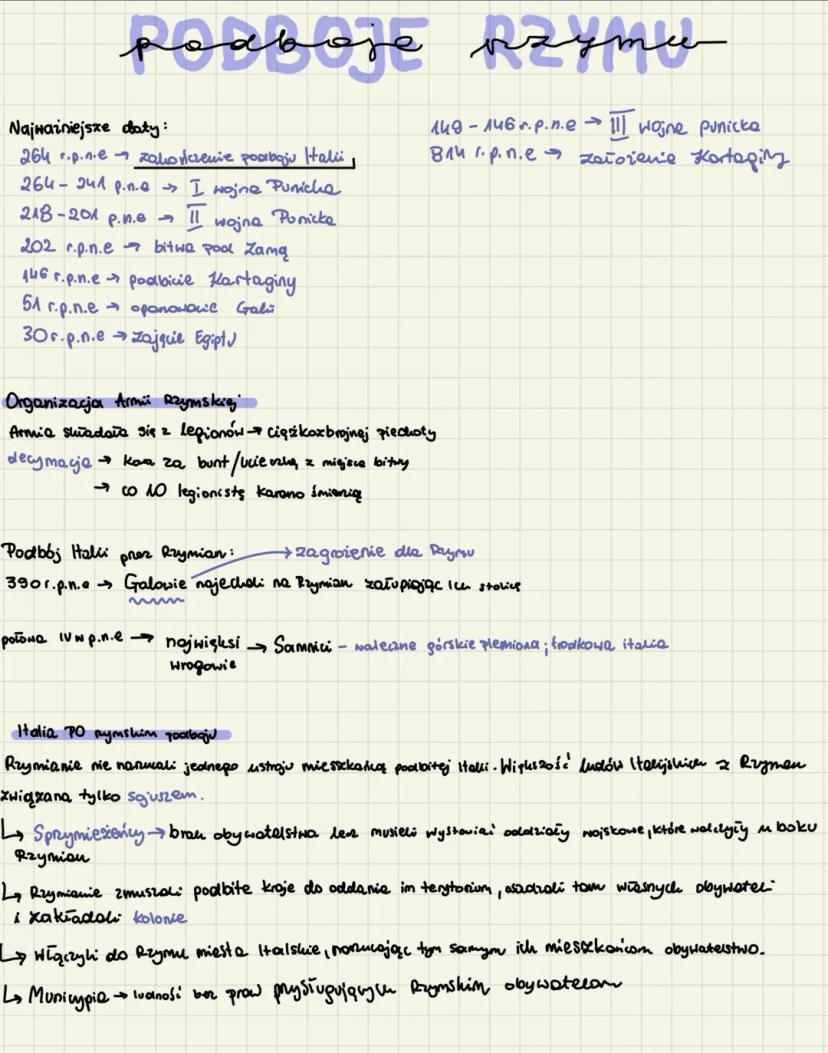 PODBOJE RZYMU
podboje rzymu
Najważniejsze daty:
264 r.p.n.e → zakończenie podboju Italii
264 - 241 p.n.e → I wojna Punicka
218-201 p.n.e → II wojna Punicka
202 r.p.n.e → bitwa pod Zamą
146 r.p.n.e → podbicie Kartaginy
51 r.p.n.e → opanowanie Galii
30 r.p.n.e → zajęcie Egiptu
149 - 146 r.p.n.e → III wojna punicka
814 r.p.n.e → założenie Kartaginy
Organizacja Armii Rzymskiej
Armia składała się z legionów → ciężkozbrojnej piechoty
decymacja → kara za bunt/ucieczkę z miejsca bitwy
→ co 10 legionistę karano śmiercią
Podbój Italii przez Rzymian: → zagrożenie dla Rzymu
390 r.p.n.e → Galowie najechali na Rzymian załupiając ich stolicę
połowa IV w p.n.e → najwięksi → Samnici - waleczne górskie plemiona; środkowa italia
wrogowie
Italia PO rzymskim podboju
Rzymianie nie narzucali jednego ustroju mieszkańcą podbitej Italii. Większość ludów Italijskich z Rzymem
związana tylko sojuszem.
↳ Sprzymierzeńcy → brak obywatelstwa lecz musieli wystawiać oddziały wojskowe, które walczyły u boku
Rzymian
↳ Rzymianie zmuszali podbite kraje do oddania im terytorium, osadzali tam własnych obywateli
i zakładali kolonie
↳ Włączyli do Rzymu miasta Italskie, narzucając tym samym ich mieszkańcom obywatelstwo.
↳ Municypia → ludność bez praw przysługujących Rzymskim obywatelom